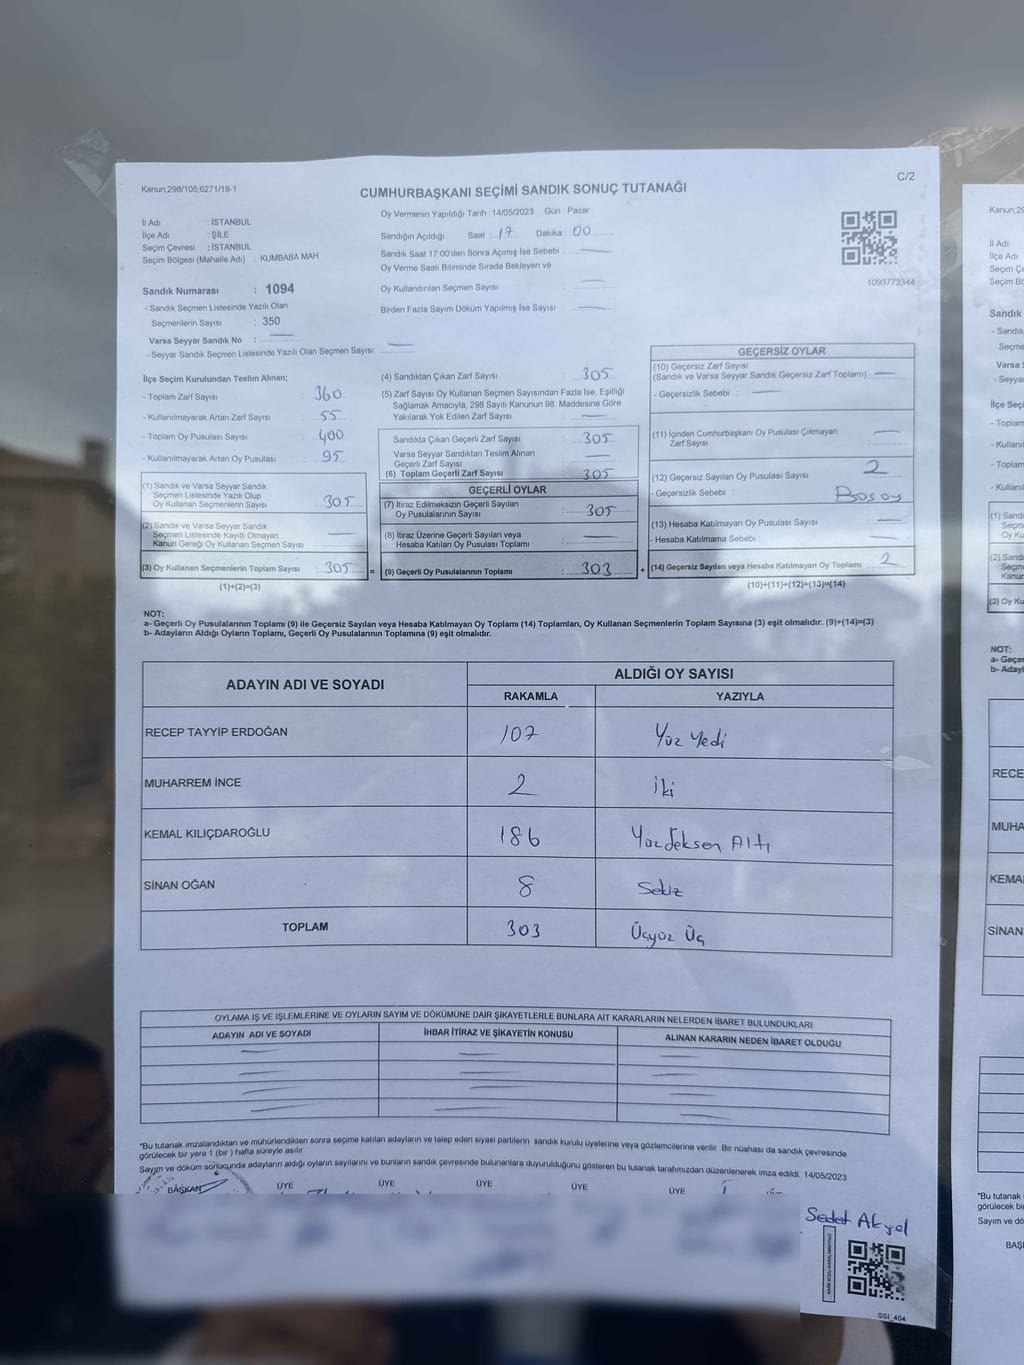 Kanun;298/105;6271/18-1
C/2
CUMHURBAŞKANI SEÇİMİ SANDIK SONUÇ TUTANAĞI
Oy Vermenin Yapıldığı Tarih :14/05/2023 Gün : Pazar
İl Adı : İSTANBUL
İlçe Adı : ŞİLE
Seçim Çevresi : İSTANBUL
Seçim Bölgesi (Mahalle Adı) : KUMBABA MAH.
Sandığın Açıldığı Saat : 17 Dakika : 00
Sandık Saat 17:00'den Sonra Açılmış İse Sebebi :
Oy Verme Saati Bitiminde Sırada Bekleyen ve
Oy Kullandırılan Seçmen Sayısı :
Birden Fazla Sayım Döküm Yapılmış İse Sayısı :
1093773344
Sandık Numarası : 1094
- Sandık Seçmen Listesinde Yazılı Olan
Seçmenlerin Sayısı : 350
Varsa Seyyar Sandık No :
- Seyyar Sandık Seçmen Listesinde Yazılı Olan Seçmen Sayısı:
İlçe Seçim Kurulundan Teslim Alınan;
- Toplam Zarf Sayısı : 360
- Kullanılmayarak Artan Zarf Sayısı : 55
- Toplam Oy Pusulası Sayısı : 400
- Kullanılmayarak Artan Oy Pusulası : 95
(1) Sandık ve Varsa Seyyar Sandık
Seçmen Listesinde Yazılı Olup
Oy Kullanan Seçmenlerin Sayısı : 305
(2) Sandık ve Varsa Seyyar Sandık
Seçmen Listesinde Kayıtlı Olmayan
Kanun Gereği Oy Kullanan Seçmen Sayısı :
(3) Oy Kullanan Seçmenlerin Toplam Sayısı : 305 =
(1)+(2)=(3)
(4) Sandıktan Çıkan Zarf Sayısı : 305
(5) Zarf Sayısı Oy Kullanan Seçmen Sayısından Fazla İse, Eşitliği
Sağlamak Amacıyla, 298 Sayılı Kanunun 98. Maddesine Göre
Yakılarak Yok Edilen Zarf Sayısı :
Sandıkta Çıkan Geçerli Zarf Sayısı : 305
Varsa Seyyar Sandıktan Teslim Alınan
Geçerli Zarf Sayısı :
(6) Toplam Geçerli Zarf Sayısı : 305
GEÇERLİ OYLAR
(7) İtiraz Edilmeksizin Geçerli Sayılan
Oy Pusulalarının Sayısı : 305
(8) İtiraz Üzerine Geçerli Sayılan veya
Hesaba Katılan Oy Pusulası Toplamı :
(9) Geçerli Oy Pusulalarının Toplamı : 303 +
GEÇERSİZ OYLAR
(10) Geçersiz Zarf Sayısı
(Sandık ve Varsa Seyyar Sandık Geçersiz Zarf Toplamı) :
- Geçersizlik Sebebi :
(11) İçinden Cumhurbaşkanı Oy Pusulası Çıkmayan
Zarf Sayısı :
(12) Geçersiz Sayılan Oy Pusulası Sayısı : 2
- Geçersizlik Sebebi : Boş oy
(13) Hesaba Katılmayan Oy Pusulası Sayısı :
- Hesaba Katılmama Sebebi :
(14) Geçersiz Sayılan veya Hesaba Katılmayan Oy Toplamı : 2
(10)+(11)+(12)+(13)=(14)
NOT:
a- Geçerli Oy Pusulalarının Toplamı (9) ile Geçersiz Sayılan veya Hesaba Katılmayan Oy Toplamı (14) Toplamları, Oy Kullanan Seçmenlerin Toplam Sayısına (3) eşit olmalıdır. (9)+(14)=(3)
b- Adayların Aldığı Oyların Toplamı, Geçerli Oy Pusulalarının Toplamına (9) eşit olmalıdır.
ADAYIN ADI VE SOYADI
ALDIĞI OY SAYISI
RAKAMLA YAZIYLA
RECEP TAYYİP ERDOĞAN 107 Yüz Yedi
MUHARREM İNCE 2 İki
KEMAL KILIÇDAROĞLU 186 Yüzseksen Altı
SİNAN OĞAN 8 Sekiz
TOPLAM 303 Üçyüz Üç
OYLAMA İŞ VE İŞLEMLERİNE VE OYLARIN SAYIM VE DÖKÜMÜNE DAİR ŞİKAYETLERLE BUNLARA AİT KARARLARIN NELERDEN İBARET BULUNDUKLARI
ADAYIN ADI VE SOYADI İHBAR İTİRAZ VE ŞİKAYETİN KONUSU ALINAN KARARIN NEDEN İBARET OLDUĞU
*Bu tutanak imzalandıktan ve mühürlendikten sonra seçime katılan adayların ve talep eden siyasi partilerin sandık kurulu üyelerine veya gözlemcilerine verilir. Bir nüshası da sandık çevresinde
görülecek bir yere 1 (bir) hafta süreyle asılır.
Sayım ve döküm sonucunda adayların aldığı oyların sayılarını ve bunların sandık çevresinde bulunanlara duyurulduğunu gösteren bu tutanak tarafımızdan düzenlenerek imza edildi. 14/05/2023
BAŞKAN ÜYE ÜYE ÜYE ÜYE ÜYE
Sedat Akyol
SSI_404
Kanun;29
İl Adı
İlçe Adı
Seçim Çe
Seçim Bö
Sandık
- Sandık
Seçme
Varsa S
- Seyya
İlçe Seçi
- Toplam
- Kullanıl
- Toplam
- Kullanıl
(1) Sand
Seçm
Oy Ku
(2) Sand
Seçm
Kanun
(3) Oy Ku
NOT:
a- Geçer
b- Adayl
RECE
MUHA
KEMAL
SİNAN
*Bu tutanak
görülecek bir
Sayım ve dö
BAŞ